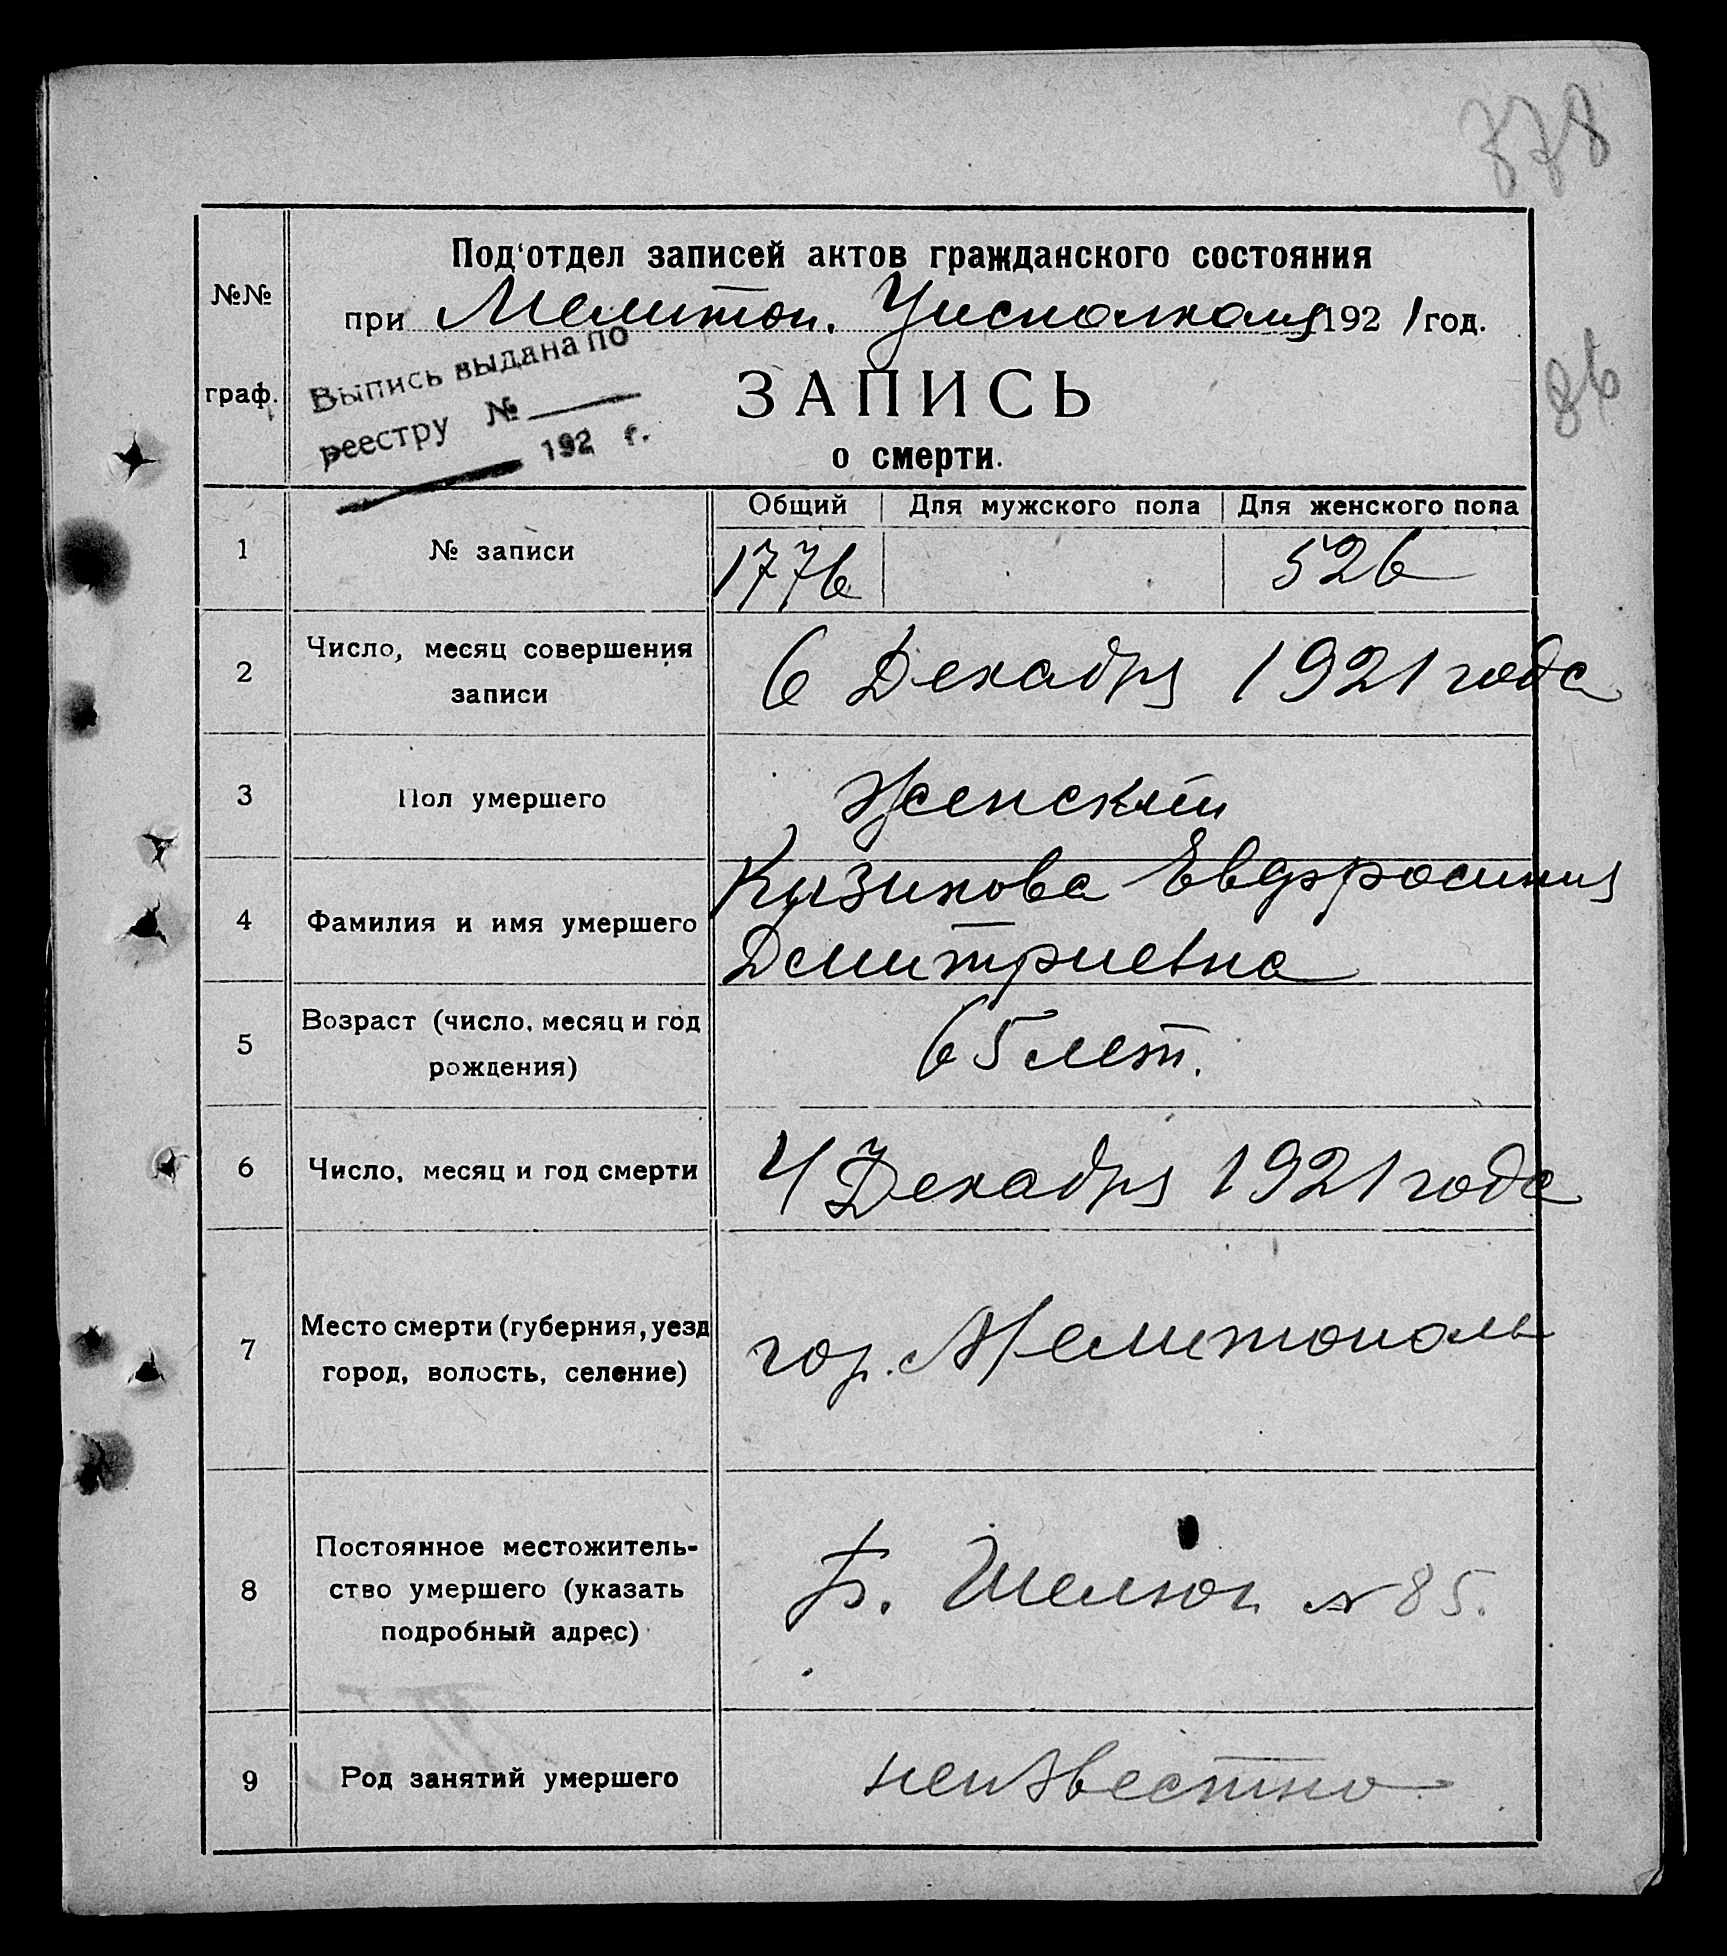 778
Под'отдел записей актов гражданского состояния
№№
при Мелитоп. Уисполкоме 1921 год.
86
Выпись выдана по
реестру №
192 г.
граф.
ЗАПИСЬ
о смерти.
Общий Для мужского пола Для женского пола
1 № записи 1776 526
2 Число, месяц совершения
записи
6 Декабря 1921 года
3 Пол умершего Женский
4 Фамилия и имя умершего
Кузикова Евдфросиния
Дмитриевна
5 Возраст (число, месяц и год
рождения)
65 лет.
6 Число, месяц и год смерти 4 Декабря 1921 года
7 Место смерти (губерния, уезд
город, волость, селение)
гор. Мелитополь
8 Постоянное местожитель-
ство умершего (указать
подробный адрес)
Б. Шелюг. № 85.
9 Род занятий умершего неизвестно